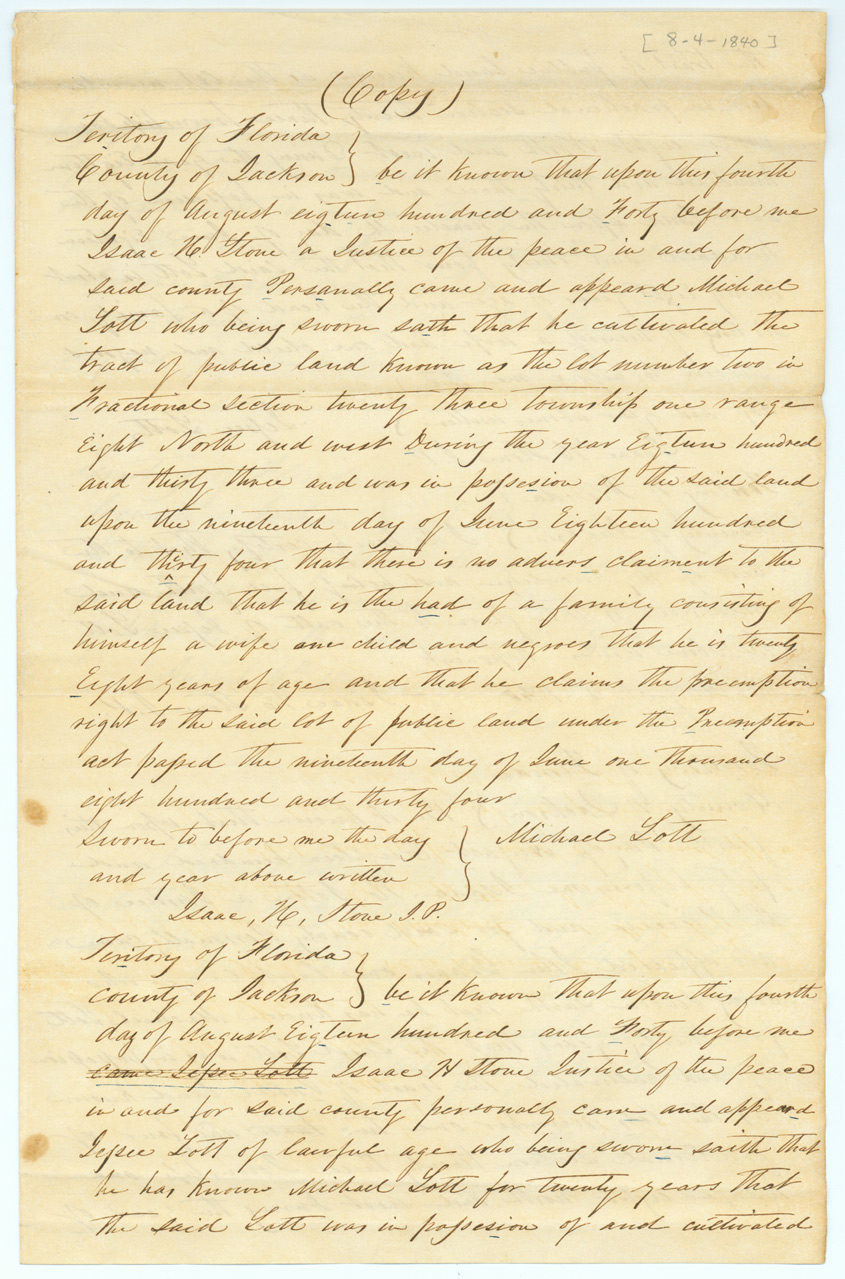 [ 8-4-1840 ]
(Copy)
Teritory of Florida
County of Jackson } be it known that upon this fourth
day of August eigteen hundred and Forty before me
Isaac H. Stone a Justice of the peace in and for
said county Personally came and appeard Michael
Lott who being sworn sath that he cultivated the
tract of public land known as the lot number two in
Fractional section twenty three township one range
Eight North and west During the year Eigteen hundred
and thirty three and was in possesion of the said land
upon the nineteenth day of June Eighteen hundred
and thirty four that there is no advers claiment to the
said land that he is the had of a family consisting of
himself a wife one child and negroes that he is twenty
Eight years of age and that he claims the preemption
right to the said lot of public land under the Preemption
act passed the nineteenth day of June one thousand
eight hundred and thirty four
Sworn to before me the day } Michael Lott
and year above written
Isaac, H, Stone J.P.
Teritory of Florida
county of Jackson } be it known that upon this fourth
day of August Eigteen hundred and Forty before me
came Jessee Lott Isaac H Stone Justice of the peace
in and for said county personally cam and appeard
Jessee Lott of lawful age who being sworn saith that
he has known Michael Lott for twenty years that
the said Lott was in possesion of and cultivated